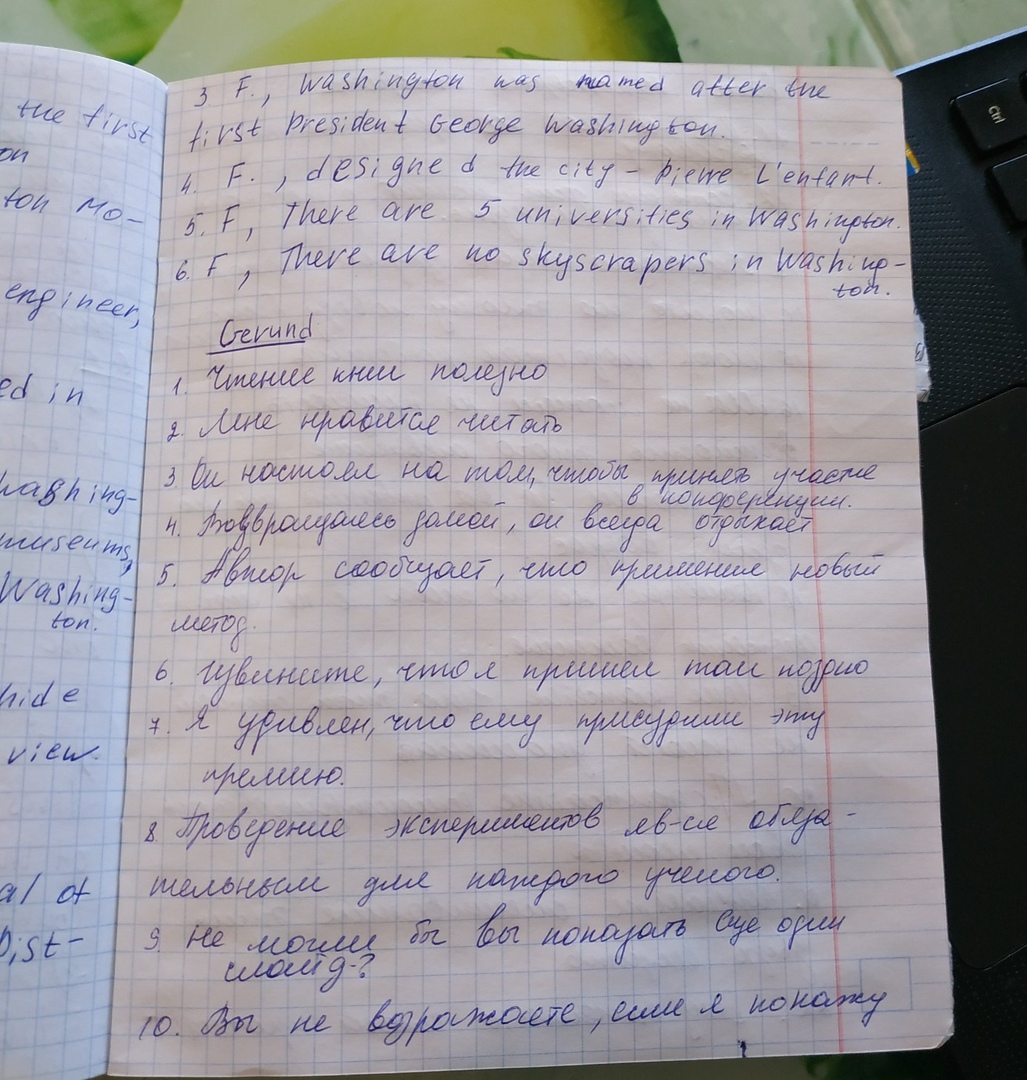 the first
on
ton Mo-
engineer,
ed in
Washing-
museums,
Washing-
ton.
hide
view.
al of
Dist-
3 F., Washington was named after the
first president George Washington.
4. F., designed the city – Pierre L'enfant.
5. F, There are 5 universities in Washington.
6. F, There are no skyscrapers in Washing-
ton.
Gerund
1. Чтение книг полезно
2. Мне нравится читать
3 Он настоял на том, чтобы принять участие
в конференции.
4. Возвращаясь домой, он всегда отдыхает
5. Автор сообщает, что применил новый
метод.
6. Извините, что я пришел так поздно
7. Я удивлен, что ему присудили эту
премию.
8. Проведение экспериментов яв-ся обяза-
тельным для каждого ученого.
9. Не могли бы Вы показать еще один
слайд?
10. Вы не возражаете, если я покажу
Ctrl